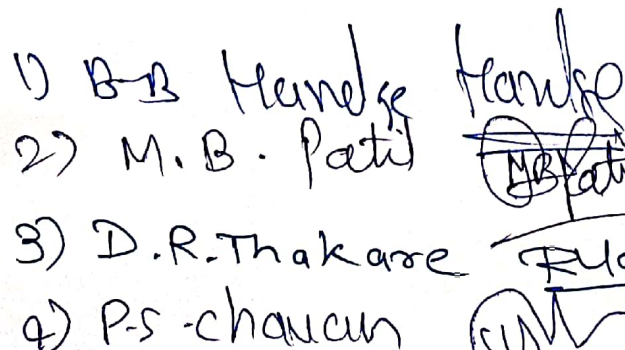 1) B-B Handge Handge
2) M. B. Patil MBPati
3) D.R. Thakare
4) P-S-chavan